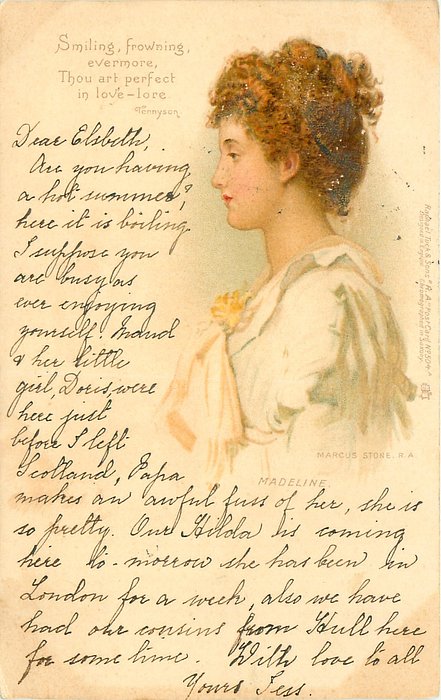 Smiling, frowning,
evermore,
Thou art perfect
in love-lore.
Tennyson
Dear Elsbeth,
Are you having
a hot summer?
here it is boiling
I suppose you
are busy as
ever enjoying
yourself. Maud
& her little
girl, Doris, were
here just
before I left
Scotland, Papa
makes an awful fuss of her, she is
so pretty. Our Hilda is coming
here to-morrow she has been in
London for a week, also we have
had our cousins from Hull here
for some time. With love to all
Yours Jess.
MARCUS STONE. R.A.
MADELINE.
Raphael Tuck & Sons "R.A." Post Card No